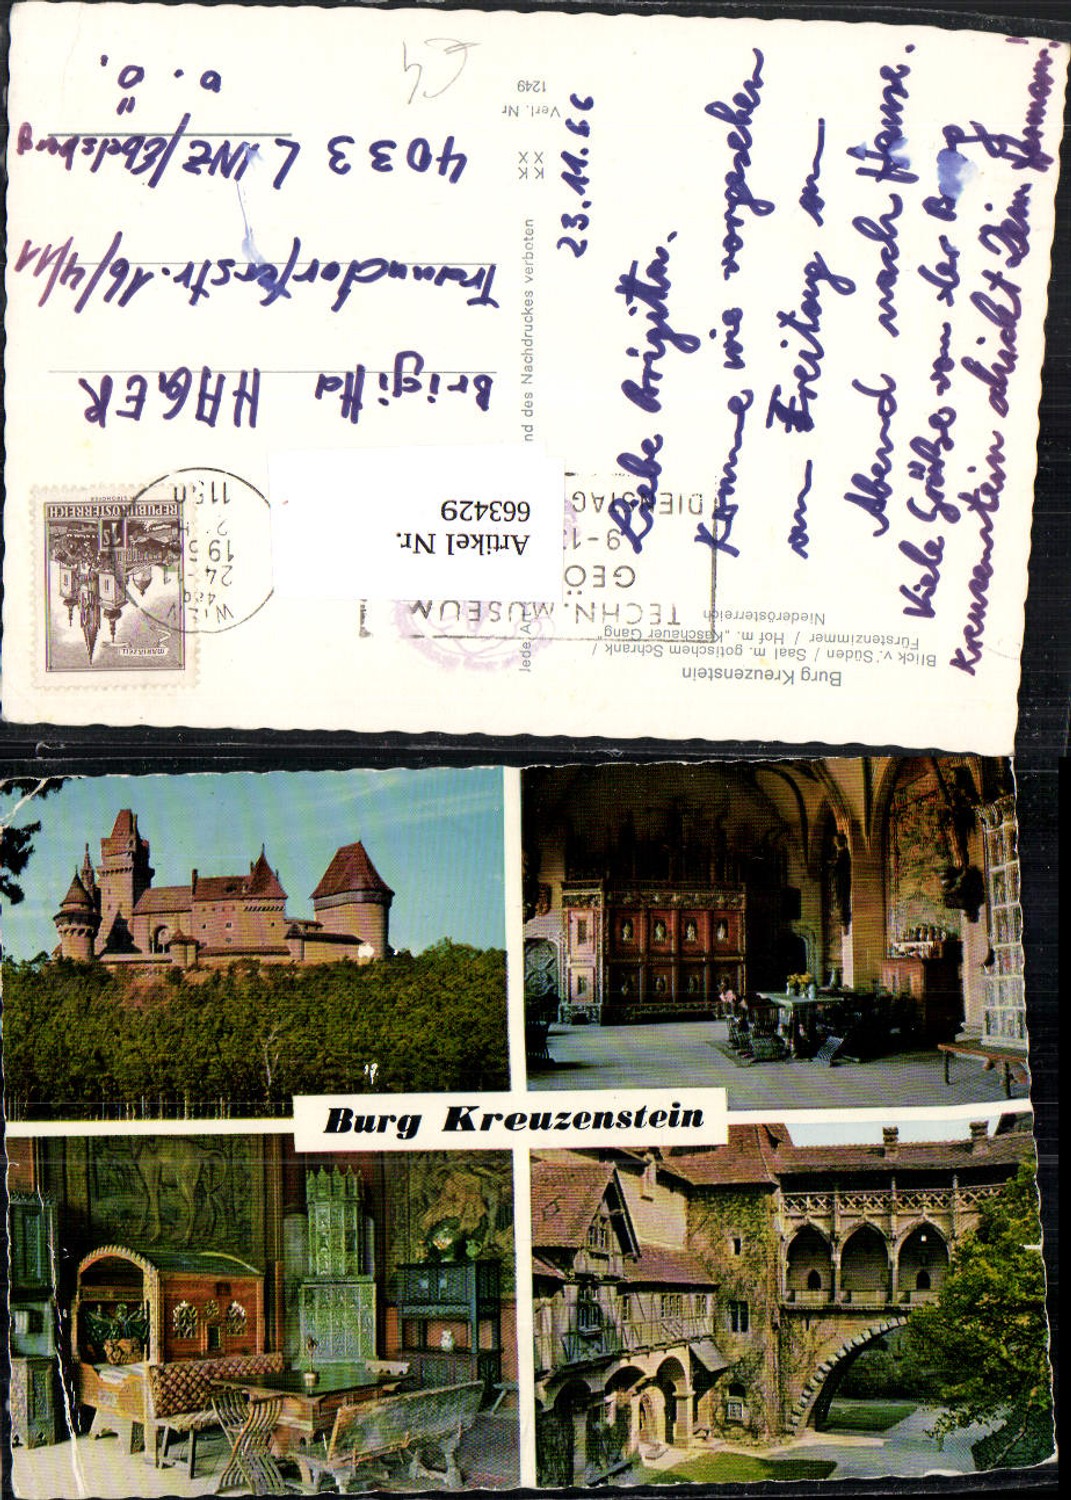 Burg Kreuzenstein
Blick v. Süden / Saal m. gotischem Schrank /
Fürstenzimmer / Hof m. „Kaschauer Gang"
Niederösterreich
TECHN. MUSEUM
GEÖ
9-1
DIENSTAG
Jede A
nd des Nachdruckes verboten
KK
XX
XX
Verl. Nr
1249
Artikel Nr.
663429
MARIAZELL
1 S
REPUBLIK ÖSTERREICH
WIEN
24-11
1150
23.11.66
Liebe Brigitta.
Komme wie vorgesehen
am Freitag am
Abend nach Hause.
Viele Grüße von der Burg
Kreuzenstein schickt Dein Hermann.
Brigitta HAGER
Traundorferstr. 16/4/11
4033 LINZ/Ebelsberg
O.Ö.
Burg Kreuzenstein